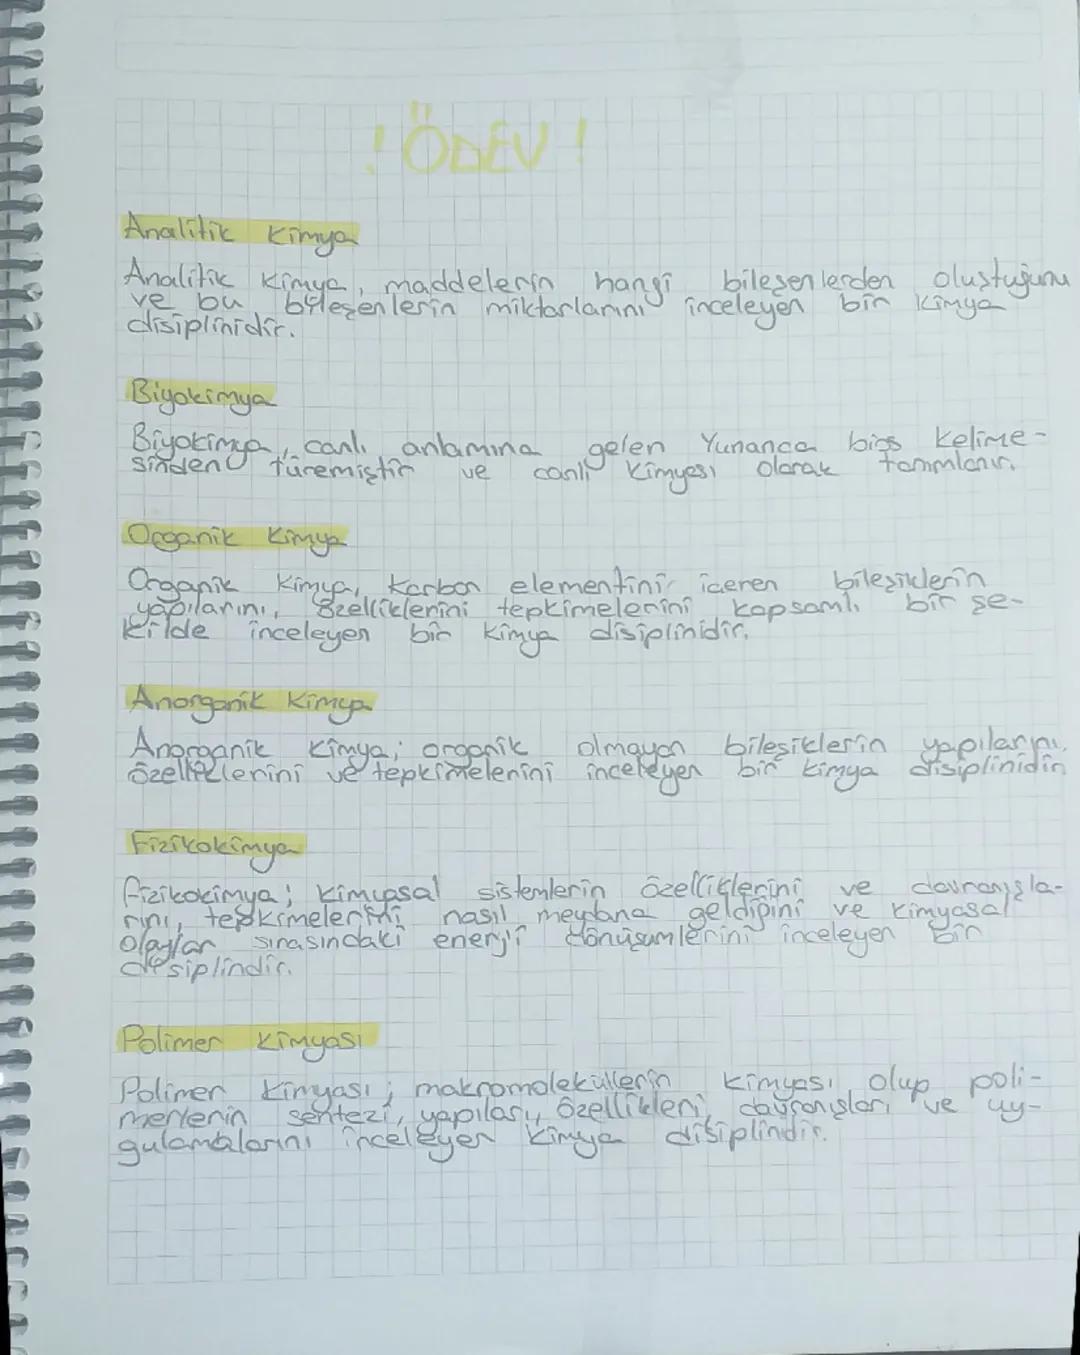 ! ÖDEV !
Analitik Kimya
Analitik Kimya, maddelerin hangi bileşenlerden oluştuğunu
ve bu bileşenlerin miktarlarını inceleyen bir kimya
disiplinidir.
Biyokimya
Biyokimya, canlı anlamına gelen Yunanca bios kelime-
sinden türemiştir ve canlı kimyası olarak tanımlanır.
Organik Kimya
Organik Kimya, karbon elementini içeren bileşiklerin
yapılarını, özelliklerini tepkimelerini kapsamlı bir şe-
kilde inceleyen bir kimya disiplinidir.
Anorganik Kimya
Anorganik Kimya; organik olmayan bileşiklerin yapılarını,
özelliklerini ve tepkimelerini inceleyen bir kimya disiplinidir
Fizikokimya
Fizikokimya; kimyasal sistemlerin özelliklerini ve davranışla-
rını, tepkimelerini nasıl meydana geldiğini ve kimyasal
olaylar sırasındaki enerji dönüşümlerini inceleyen bir
disiplindir.
Polimer Kimyası
Polimer Kimyası; makromoleküllerin kimyası olup poli-
merlerin sentezi, yapıları, özellikleri, davranışları ve uy-
gulamalarını inceleyen kimya disiplindir.